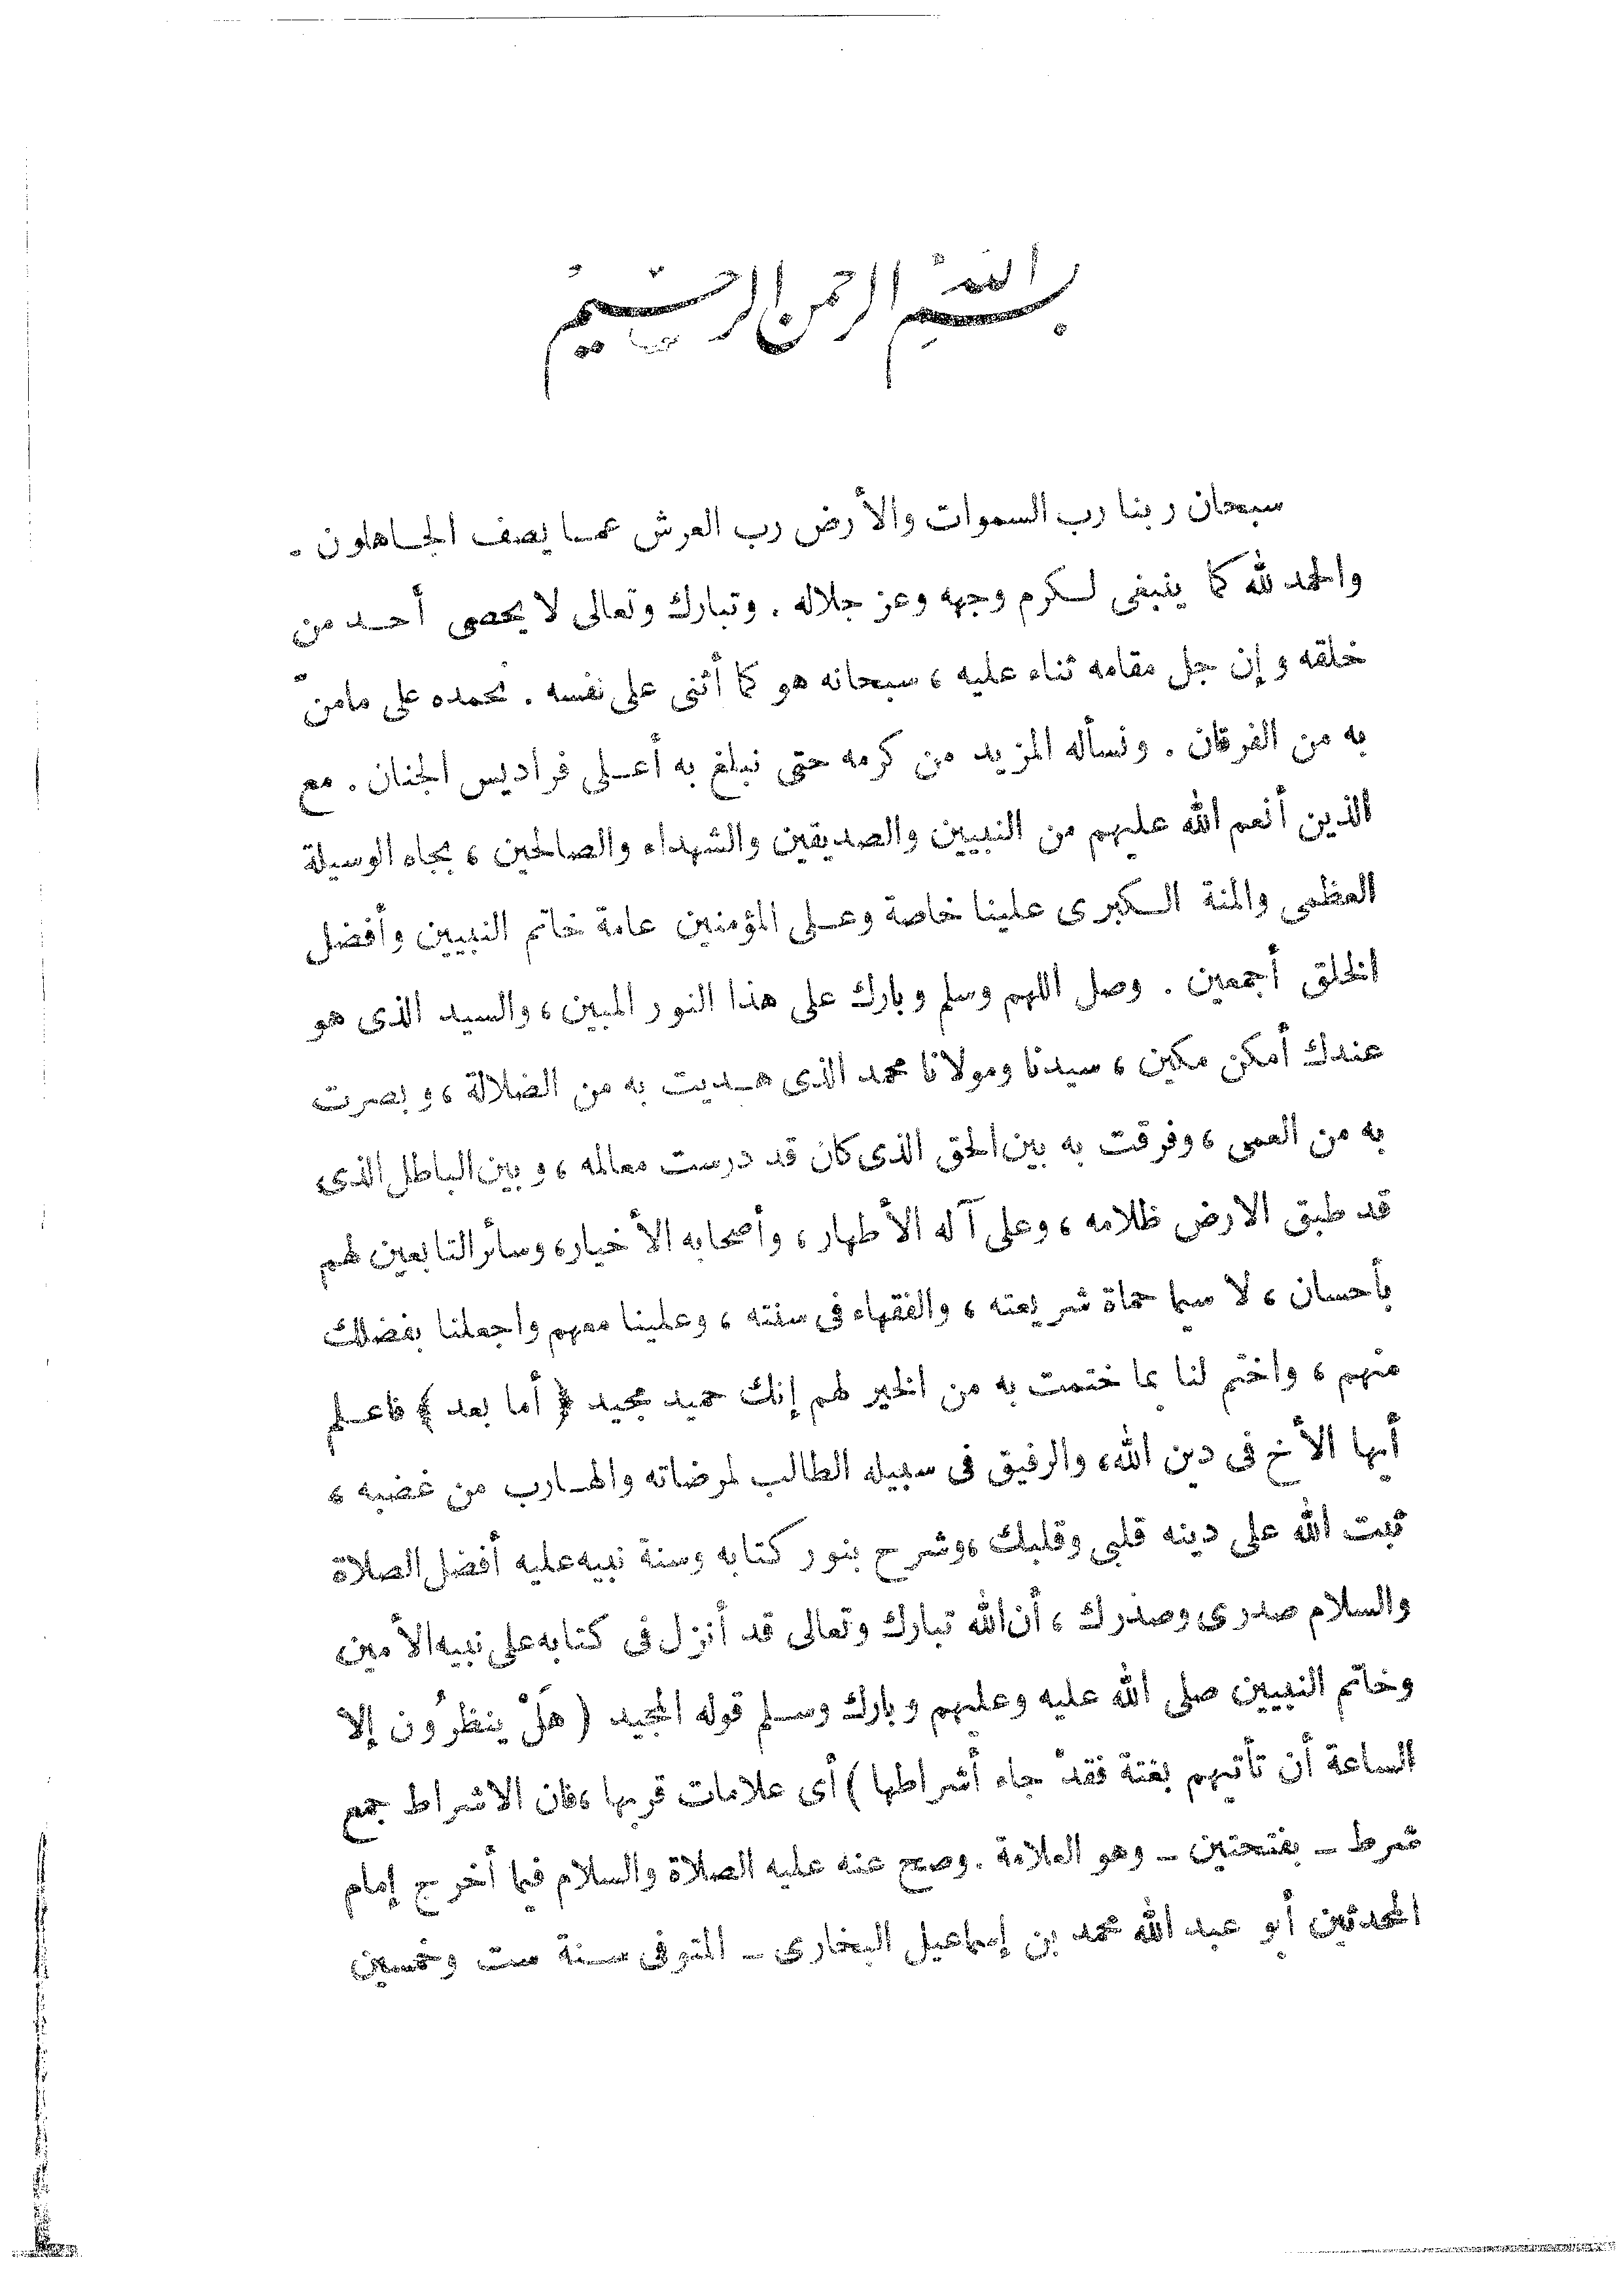 بسم الله الرحمن الرحيم
سبحان ربنا رب السموات والأرض رب العرش عما يصف الجاهلون .
والحمد لله كما ينبغى لكرم وجهه وعز جلاله . وتبارك وتعالى لا يحصى أحد من
خلقه وإن جل مقامه ثناء عليه ، سبحانه هو كما أثنى على نفسه . نحمده على مامنّ
به من الفرقان . ونسأله المزيد من كرمه حتى نبلغ به أعلى فراديس الجنان . مع
الذين أنعم الله عليهم من النبيين والصديقين والشهداء والصالحين ، بجاه الوسيلة
العظمى والمنة الكبرى علينا خاصة وعلى المؤمنين عامة خاتم النبيين وأفضل
الخلق أجمعين . وصل اللهم وسلم وبارك على هذا النور المبين ، والسيد الذى هو
عندك أمكن مكين ، سيدنا ومولانا محمد الذى هديت به من الضلالة ، وبصرت
به من العمى ، وفرقت به بين الحق الذى كان قد درست معالمه ، وبين الباطل الذى
قد طبق الارض ظلامه ، وعلى آله الأطهار ، وأصحابه الأخيار ، وسائر التابعين لهم
بأحسان ، لا سيما حماة شريعته ، والفقهاء فى سنته ، وعلينا معهم واجعلنا بفضلك
منهم ، واختم لنا بما ختمت به من الخير لهم إنك حميد مجيد ﴿ أما بعد ﴾ فاعلم
أيها الأخ فى دين الله ، والرفيق فى سبيله الطالب لمرضاته والهارب من غضبه ،
ثبت الله على دينه قلبى وقلبك ، وشرح بنور كتابه وسنة نبيه عليه أفضل الصلاة
والسلام صدرى وصدرك ، أن الله تبارك وتعالى قد أنزل فى كتابه على نبيه الأمين
وخاتم النبيين صلى الله عليه وعليهم وبارك وسلم قوله المجيد ( هَلْ ينظرُون إلا
الساعة أن تأتيهم بغتة فقدْ جاء أشراطها ) أى علامات قربها ، فان الاشراط جمع
شرط – بفتحتين – وهو العلامة . وصح عنه عليه الصلاة والسلام فيما أخرج إمام
المحدثين أبو عبد الله محمد بن إسماعيل البخارى – المتوفى سنة ست وخمسين